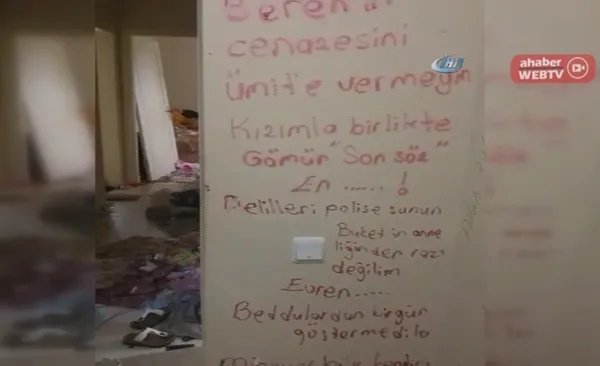 Beren'in
cenazesini
Ümit'e vermeyin
Kızımla birlikte
Gömün "Son söz"
En ...... !
Delilleri polise sunun
Buket'in anne
liğinden razı
değilim
Evren.....
Beddulardun kirgün
göstermedile
ahaber
WEBTV